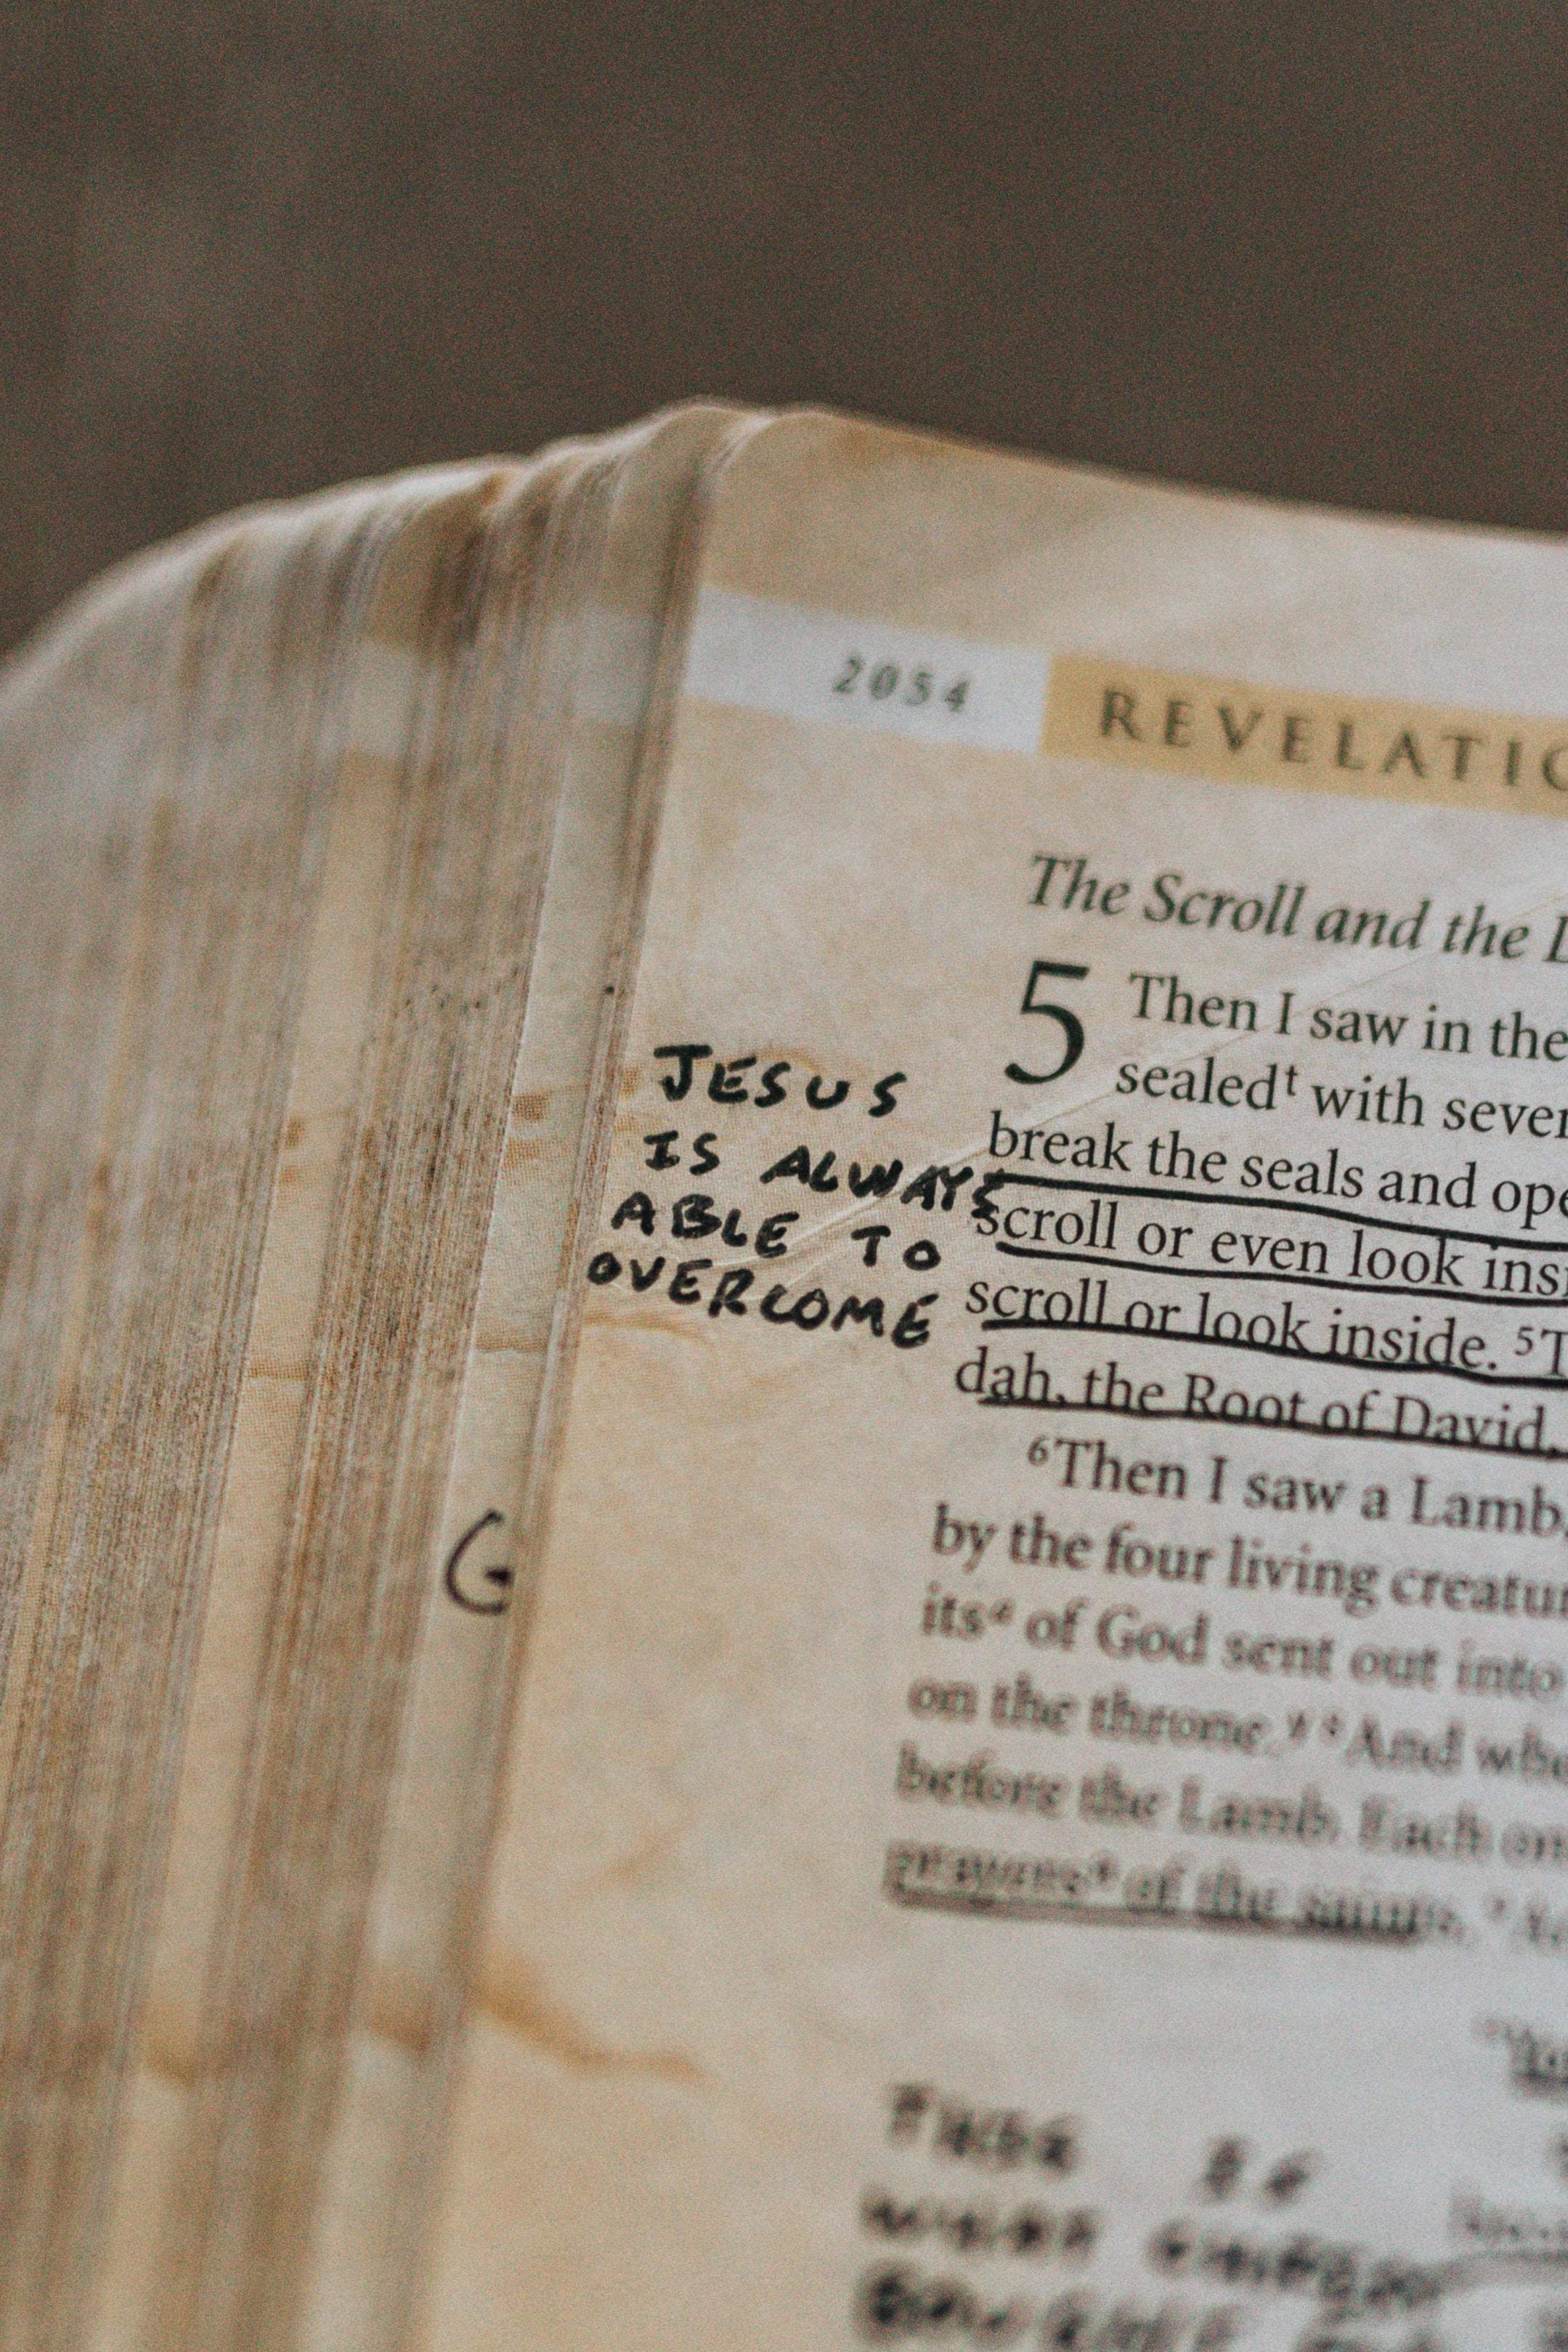 2054 REVELATIO
The Scroll and the L
5 Then I saw in the
sealedᵗ with seven
break the seals and ope
scroll or even look insi
scroll or look inside. ⁵T
dah, the Root of David,
⁶Then I saw a Lamb,
by the four living creatur
its of God sent out into
on the throne. And whe
before the Lamb. Each on
prayers of the saints.
JESUS
IS ALWAYS
ABLE TO
OVERCOME
G